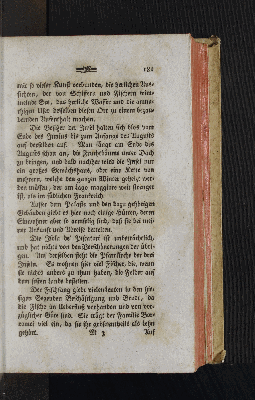 181
mit so vieler Kunst verbunden, die herrlichen Aus-
sichten, der von Schiffern und Fischern wim-
melnde See, das herrliche Wasser und die anmu-
thigen Ufer desselben diesen Ort zu einem bezau-
bernden Aufenthalt machen.
Die Besitzer der Insel halten sich blos vom
Ende des Junius bis zum Anfange des Augusts
auf derselben auf. Man fängt am Ende des
Augusts schon an, die Fruchtbäume unter Dach
zu bringen, und bald nachher wird die Insel nur
ein großes Gewächshaus, oder eine Kette von
mehrern, welche den ganzen Winter geheitzt wer-
den müssen, der am Lago maggiore weit strenger
ist, als im südlichen Frankreich.
Außer dem Pallaste und den dazu gehörigen
Gebäuden giebt es hier noch einige Hütten, deren
Einwohner aber so armselig sind, daß sie da nur
ihre Ankunft und Abreise betteln.
Die Isola de' Pescatori ist unbeträchtlich,
und hat nichts von den Verschönerungen der übri-
gen. Auf derselben steht die Pfarrkirche der drei
Inseln. Es wohnen hier viel Fischer, die, wann
sie nichts anders zu thun haben, die Felder auf
dem festen Lande bestellen.
Der Fischfang giebt vielen Leuten in den hie-
sigen Gegenden Beschäftigung und Brodt, da
die Fische im Ueberfluß vorhanden und von vor-
züglicher Güte sind. Sie trägt der Familie Bor-
romei viel ein, da sie ihr größtentheils als Lehn
gehört. M 3 Auf